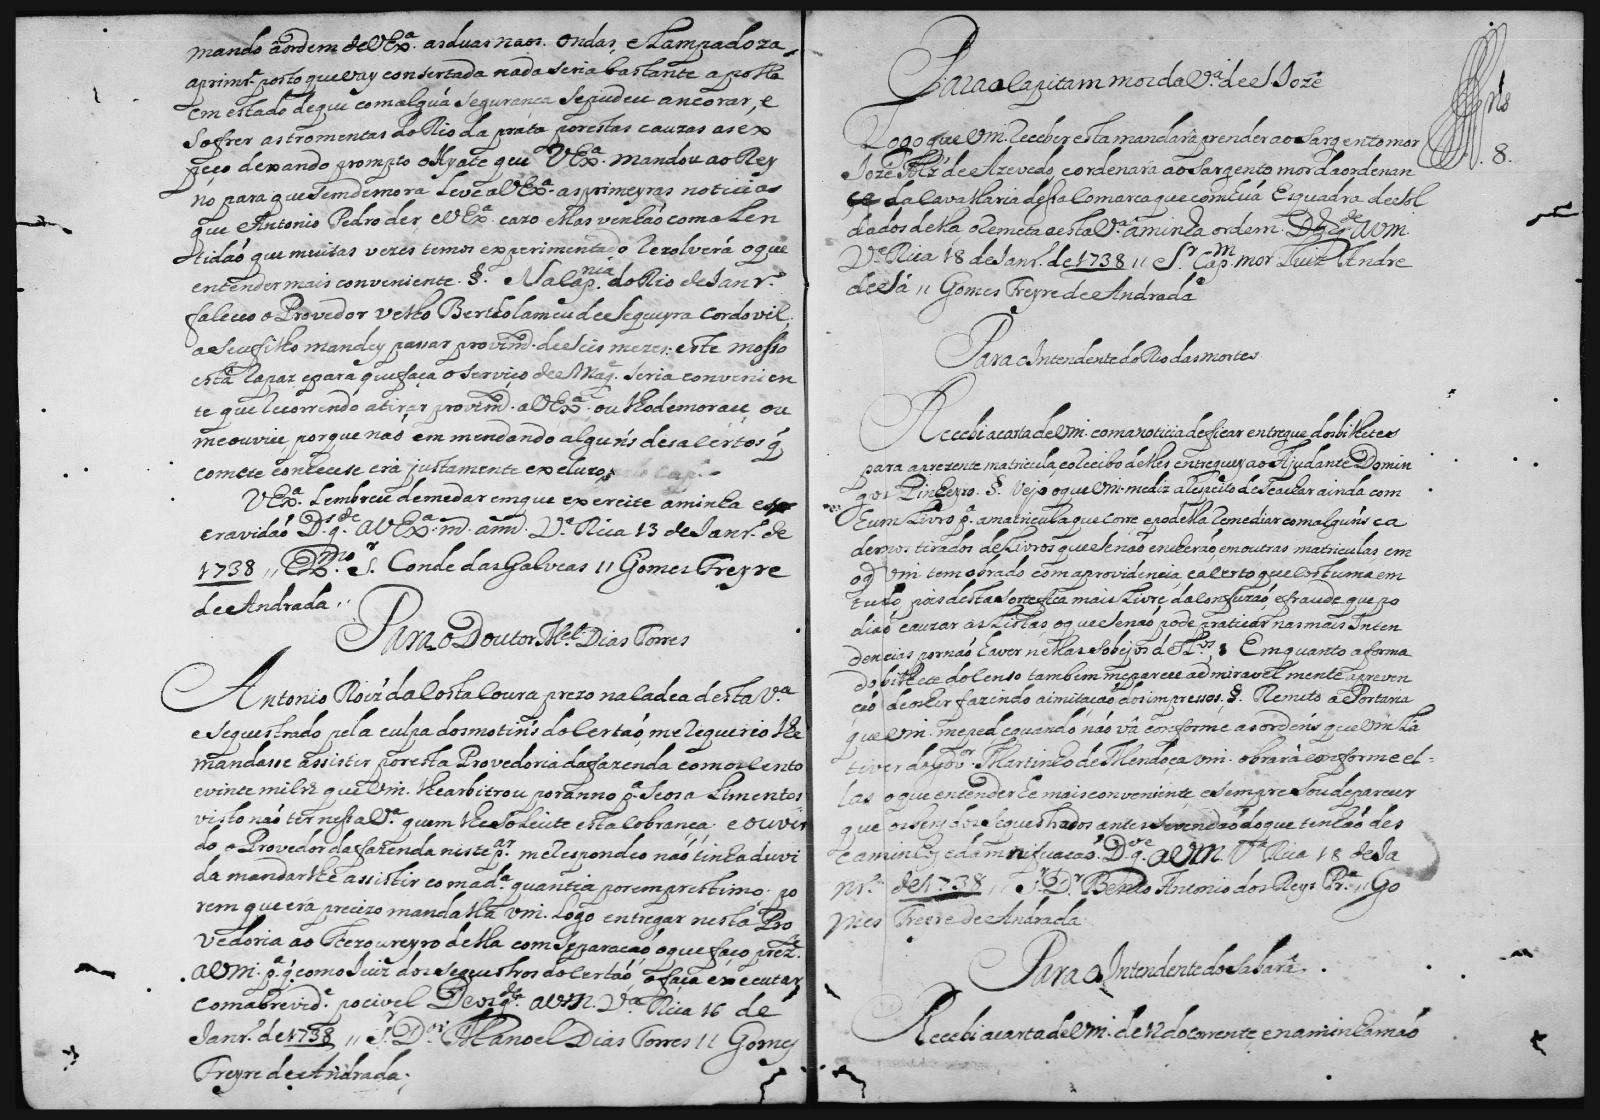 mando á ordem de VEx.ª as duas naos. Ondas, e Lampadoza
a prim.ª posto que vay consertada nada seria bastante a polla
em estado de que com algũa segurança se pudece ancorar, e
Sofrer as tromentas do Rio da prata por estas cauzas as ex
peço dexando prompto o Hyate que VEx.ª mandou ao Rey
nó para que sem demora leve a VEx.ª as primeyras noticias
que Antonio Pedro der, e VEx.ª cazo ellas venhaó com a len
tidaó que muitas vezes temos experimentado rezolverá o que
entender mais conveniente. §. Na Cap.nia do Rio de Janr.º
faleceo o Provedor velho Bertholameu de Sequeyra Cordovil,
a seu filho mandey passar provim.to de seis mezes: este mosso
está capaz e para que faça o serviço de S Mag.e seria convenien
te que recorrendo a tirar provim.to a VEx.ª ou lho demorace, ou
me ouvice porque naó emmendando alguñs desacertos q̃
comete conhece era justamente excluzo,
VEx.ª lembrece de me dar em que exercite a minha es
cravidaó D.s g.de a VEx.ª m. ann. V.ª Rica 13 de Janr.º de
1738 ,, Ex.mo S.r Conde das Galveas ,, Gomes Freyre
de Andrada ,,
Para o Doutor M.el Dias Torres
Antonio Roiz da Costa Loura prezo na Cadea desta V.ª
e sequestrado pela culpa dos motins do Certaó, me requereo lhe
mandasse assistir por esta Provedoria da fazenda com os cento
e vinte mil rz que Vm. lhe arbitrou por anno p.ª seos alimentos
visto naó ter nesta V.ª quem lhe solicite esta cobrança. e ouvin
do o Provedor da fazenda neste p.ar me respondeo naó tinha duvi
da mandarlhe assistir com a d.ª quantia por emprestimo. po
rem que era precizo mandalla Vm. logo entregar nesta Pro
vedoria ao Thezoureyro della com separaçaó o que faço prez.e
a Vm. p.ª q̃ como Juiz dos Sequestros do Certaó, o faça executar
com a brevid.e pocivel Deos g.de a Vm. V.ª Rica 16 de
Janr.º de 1738 ,, S.r D.or Manoel Dias Torres ,, Gomes
Freyre de Andrada.
8.
Para o Capitam mor da V.ª de S Jozé
Logo que Vm. receber esta mandará prender ao Sargento mor
Jozé de Azevedo, e ordenará ao Sargento mor da ordenan
ça da Cavallaria dessa Comarca que com hũa Esquadra de sol
dados della o remeta a esta V.ª a minha ordem. D.s g.de a Vm.
V.ª Rica 18 de Janr.º de 1738 ,, S.r Cap.m mor Luiz Andre
de Sá ,, Gomes Freyre de Andrada
Para o Intendente do Rio das mortes
Recebi a carta de Vm. com a noticia de ficar entregue dos bilhetes
para a prezente matricula e o recibo delles entreguey ao Ajudante Domin
gos Pinheyro. §. Vejo o que Vm. me diz a respeito de se achar ainda com
hum Livro p.ª a matricula que corre e podella remediar com alguñs ca
dernos tirados de Livros que se naó encheraó em outras matriculas em
o q̃ Vm. tem obrado com a providencia, e acerto que costuma em
tudo, pois desta sorte fica mais livre da confuzaó, e fraude que po
diaó cauzar as Listas o que se naó pode praticar nas mais Inten
dencias por naó haver nellas sobejos de L.os § Emquanto a forma
do bilhete do Censo tambem me parece admiravelmente a preven
çaó de os hir fazendo a imitaçaó dos impressos. §. Remeto a Portaria
que Vm. me pede, e quando naó vá conforme as ordeñs que Vm. lá
tiver do gov.or Martinho de Mendoça Vm. obrará conforme el=
las o que entender he mais conveniente, e sempre sou de parecer
que os beñs dos Sequestrados antes se vendaó do que tenhaó des
caminhos, e damnificacaó. D.s g.de a Vm. V.ª Rica 18 de Ja
nr.º de 1738 ,, S.r D.r Bento Antonio dos Reys Pr.ª ,, Go
mes Freyre de Andrada
Para o Intendente do Sabará
Recebi a carta de Vm. de 12 do corrente e na minha maó